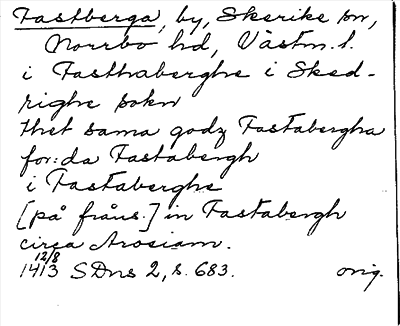 Fastberga, by, Skerike sn,
Norrbo hd, Västm. l.
i Fasthaberghe i Sked-
righe sokn
thet sama godz Fastabergha
for:da Fastabergh
i Fastaberghe
[på fråns.] in Fastabergh
circa Arosiam.
12/8
1413 SDns 2, s. 683. orig.